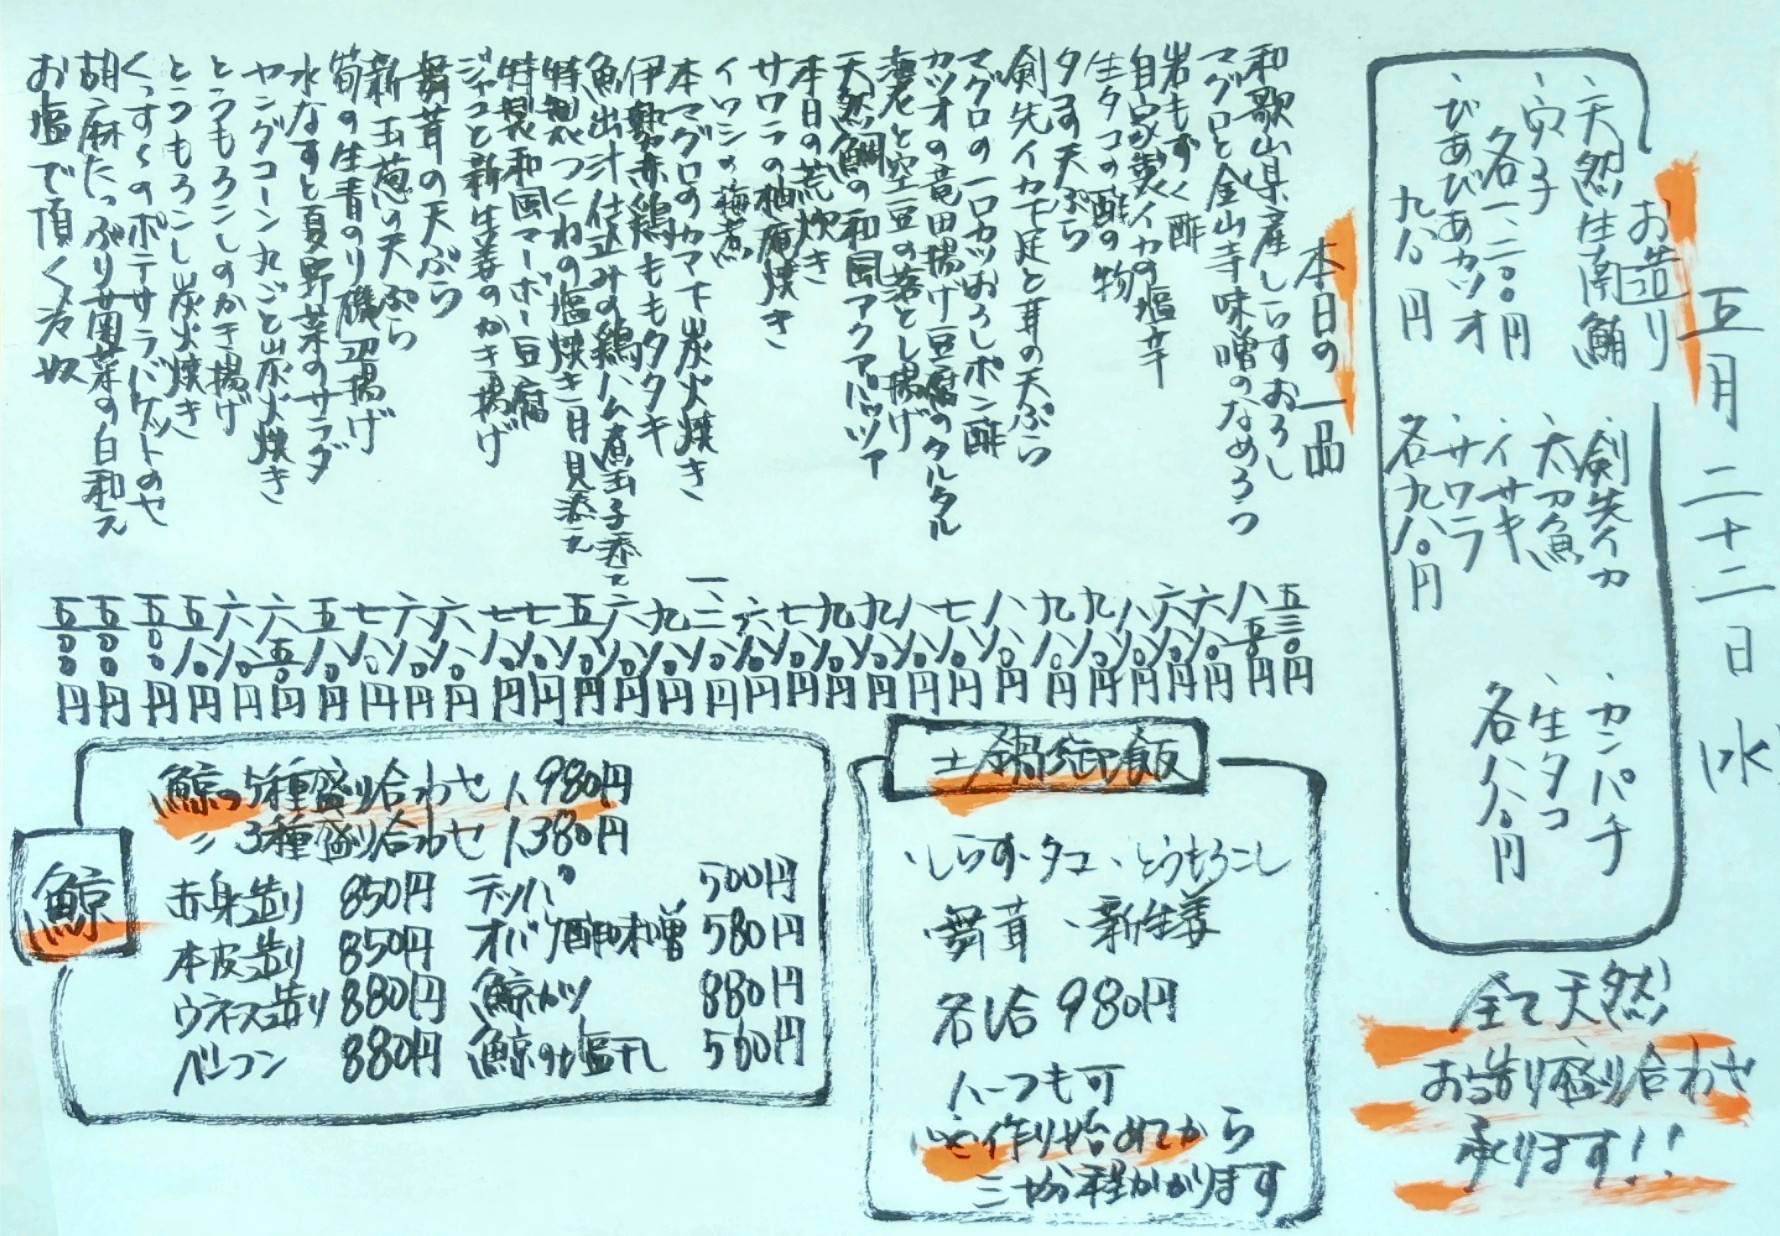 五月二十二日(水)
お造り
・天然生南鮪
・穴子
各一、二〇〇円
・びあびあカツオ
九八〇円
・剣先イカ
・太刀魚
・イサキ
・サワラ
各九八〇円
・カンパチ
・生タコ
各八八〇円
全て天然
お造り盛り合わせ
承ります!!
本日の一品
和歌山県産しらすおろし 五三〇円
マグロと金山寺味噌のなめろう 八五〇円
岩もずく酢 六八〇円
自家製イカの塩辛 六八〇円
生タコの酢の物 八八〇円
タコ天ぷら 九八〇円
剣先イカ下足と茸の天ぷら 九八〇円
マグロの一口カツおろしポン酢 八八〇円
カツオの竜田揚げ豆腐のタルタル 七八〇円
海老と空豆の落とし揚げ 八八〇円
天然鯛の和風アクアパッツァ 九八〇円
本日の荒炊き 九八〇円
サワラの柚庵焼き 七八〇円
イワシの梅煮 六八〇円
本マグロのカマ下炭火焼き 一、三八〇円
伊勢赤鶏ももタタキ 九八〇円
魚出汁仕込みの鶏ハム煮玉子添え 六八〇円
特製つくねの塩焼き月見添え 五八〇円
特製和風マーボー豆腐 七八〇円
ジャコと新生姜のかき揚げ 七八〇円
舞茸の天ぷら 六八〇円
新玉葱の天ぷら 六八〇円
筍の生青のり磯辺揚げ 七八〇円
水なすと夏野菜のサラダ 五八〇円
ヤングコーン丸ごと炭火焼き 六五〇円
とうもろこしのかき揚げ 六八〇円
とうもろこし炭火焼き 五八〇円
くっすくのポテサラバゲットのせ 五五〇円
胡麻たっぷり菜の白和え 五五〇円
お塩で頂く冷奴 五五〇円
土鍋御飯
・しらす・タコ・とうもろこし
・舞茸・新生姜
各1合980円
ハーフも可
作り始めてから
三十分程かかります
鯨
鯨の5種盛り合わせ 1,980円
〃 3種盛り合わせ 1,380円
赤身造り 850円
本皮造り 850円
ウネス造り 880円
ベーコン 880円
テッパ 500円
オバケ酢味噌 580円
鯨カツ 880円
鯨の塩干し 560円